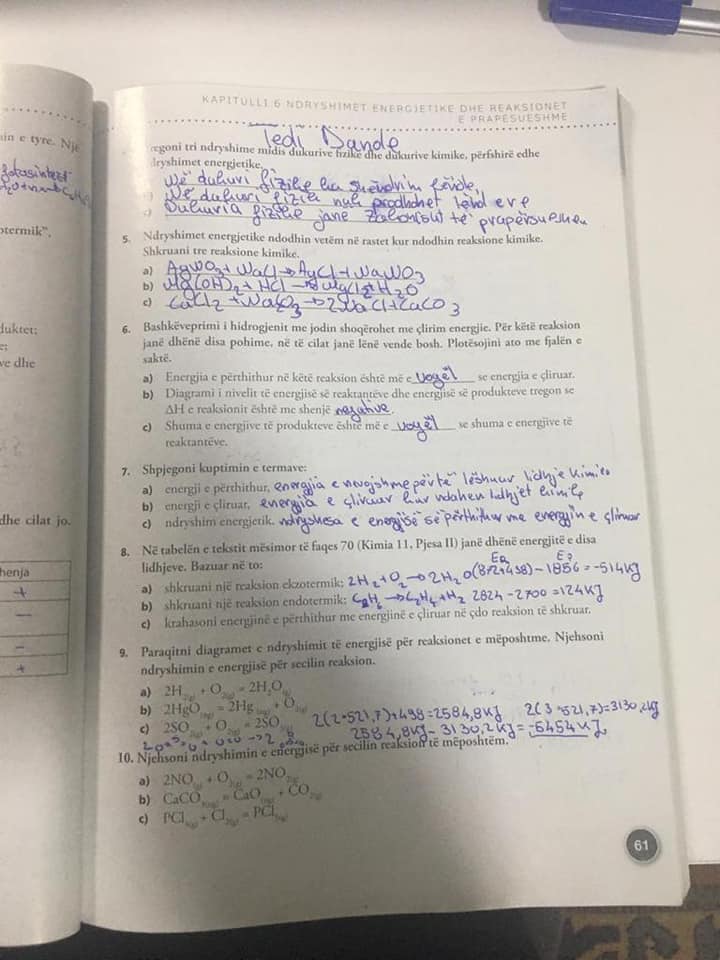 KAPITULLI 6 NDRYSHIMET ENERGJETIKE DHE REAKSIONET
E PRAPËSUESHME
in e tyre. Një
fotosintezë
otermik".
duktet;
ve dhe
dhe cilat jo.
henja
+
−
−
+
Tedi Dande
regoni tri ndryshime midis dukurive fizike dhe dukurive kimike, përfshirë edhe
dryshimet energjetike.
Në dukuri fizike ka shëndrim fënde
Në dukuri fizik nuk prodhohet lënd e re
c) Dukuria fizike janë zakonisht të prapërsueshem
5. Ndryshimet energjetike ndodhin vetëm në rastet kur ndodhin reaksione kimike.
Shkruani tre reaksione kimike.
a) AgNO3 + NaCl → AgCl + NaNO3
b) Mg(OH)2 + HCl → MgCl2 + H2O
c) CaCl2 + NaCO3 → 2NaCl + CaCO3
6. Bashkëveprimi i hidrogjenit me jodin shoqërohet me çlirim energjie. Për këtë reaksion
janë dhënë disa pohime, në të cilat janë lënë vende bosh. Plotësojini ato me fjalën e
saktë.
a) Energjia e përthithur në këtë reaksion është më e vogël se energjia e çliruar.
b) Diagrami i nivelit të energjisë së reaktantëve dhe energjisë së produkteve tregon se
ΔH e reaksionit është me shenjë negative.
c) Shuma e energjive të produkteve është më e vogël se shuma e energjive të
reaktantëve.
7. Shpjegoni kuptimin e termave:
a) energji e përthithur, energjia e nevojshme për të lëshuar lidhje kimike
b) energji e çliruar, energjia e çliruar kur ndahen lidhjet kimike
c) ndryshim energjetik. ndryshesa e energjisë së përthithur me energjin e çliruar
8. Në tabelën e tekstit mësimor të faqes 70 (Kimia 11, Pjesa II) janë dhënë energjitë e disa
lidhjeve. Bazuar në to:
Ea E?
a) shkruani një reaksion ekzotermik; 2H2+O2→2H2O (872+498)−1856=−514KJ
b) shkruani një reaksion endotermik; C2H6→C2H4+H2 2824−2700=124KJ
c) krahasoni energjinë e përthithur me energjinë e çliruar në çdo reaksion të shkruar.
9. Paraqitni diagramet e ndryshimit të energjisë për reaksionet e mëposhtme. Njehsoni
ndryshimin e energjisë për secilin reaksion.
a) 2H2(g) + O2(g) = 2H2O(g)
b) 2HgO(ng) = 2Hg(lëng) + O2(g)
c) 2SO2(g) + O2(g) = 2SO3(g) 2(2·521,7)+498=2584,8KJ 2(3·521,7)=3130,2KJ
2584,8KJ−3130,2KJ=−5454KJ
10. Njehsoni ndryshimin e energjisë për secilin reaksion të mëposhtëm.
a) 2NO(g) + O2(g) = 2NO2(g)
b) CaCO3(ng) = CaO(ng) + CO2(g)
c) PCl3(g) + Cl2(g) = PCl5(g)
61